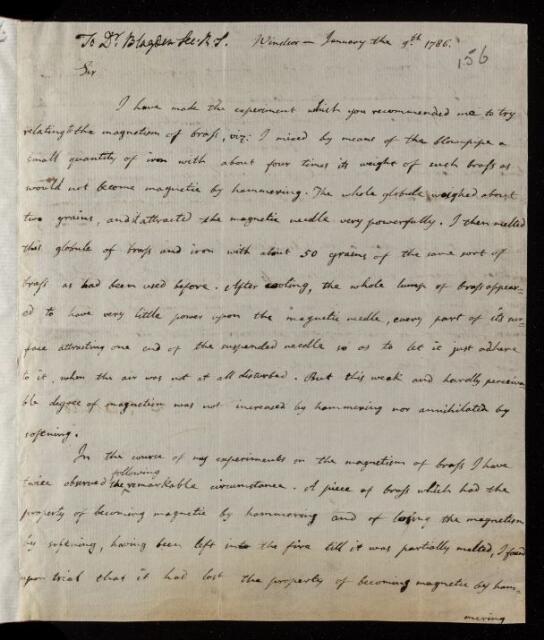 To Dr. Blagden Sec. R. S. Windsor — January the 9th. 1786.
156
Sir
I have made the experiment which you recommended me to try
relating to the magnetism of brass, viz: I mixed by means of the blowpipe a
small quantity of iron with about four times its weight of such brass as
would not become magnetic by hammering. The whole globule weighed about
two grains, and it attracted the magnetic needle very powerfully. I then melted
this globule of brass and iron with about 50 grains of the same sort of
brass as had been used before. After cooling, the whole lump of brass appear-
ed to have very little power upon the magnetic needle, every part of its sur-
face attracting one end of the suspended needle so as to let it just adhere
to it, when the air was not at all disturbed. But this weak and hardly perceiva-
ble degree of magnetism was not increased by hammering nor annihilated by
softening.
In the course of my experiments on the magnetism of brass I have
following
twice observed the remarkable circumstance. A piece of brass which had the
property of becoming magnetic by hammering and of losing the magnetism
by softening, having been left in the fire till it was partially melted, I found
upon trial that it had lost the property of becoming magnetic by ham-
mering